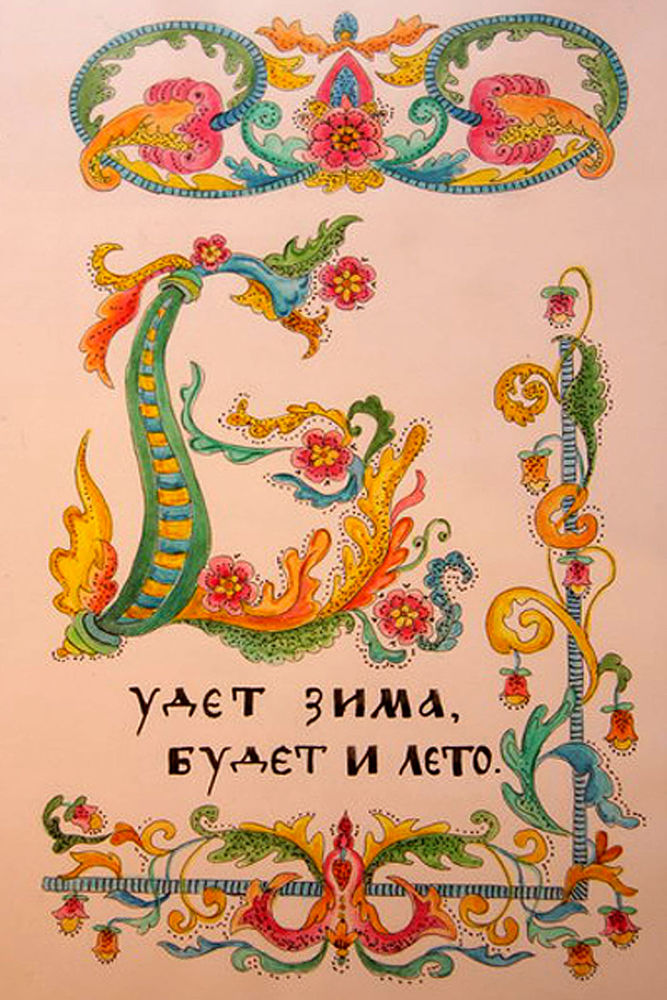 Б
удет зима,
будет и лето.